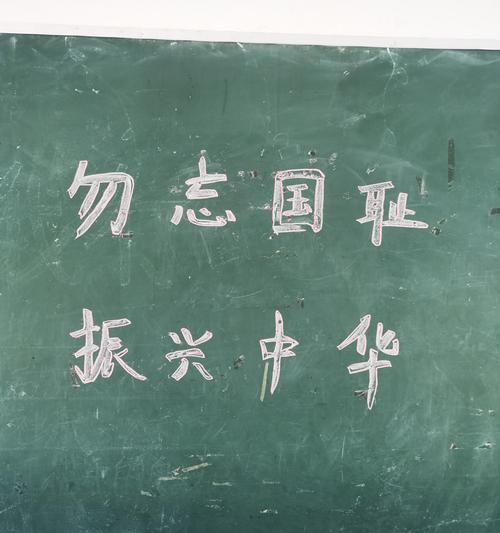 勿志国耻
振兴中华